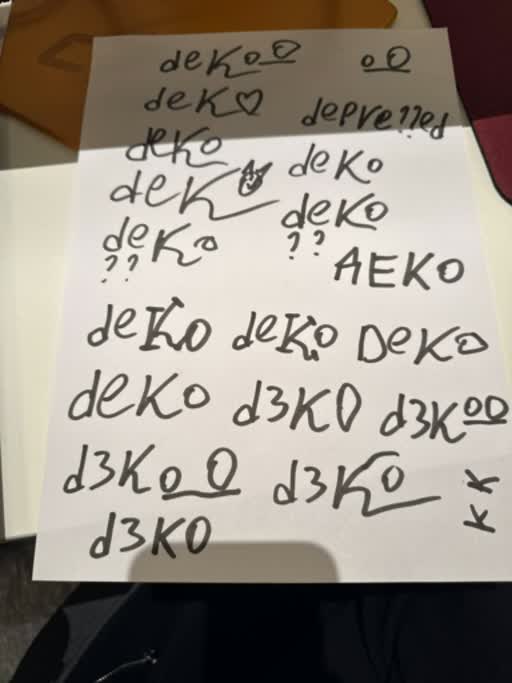 deKoO oO
deK♡ depre??ed
deKo
deKo
deK
deKo
deKo
?? ??
AEKO
deKo deKo DeKo
deKo d3KO d3KoO
d3KoO d3Ko
K K
d3KO